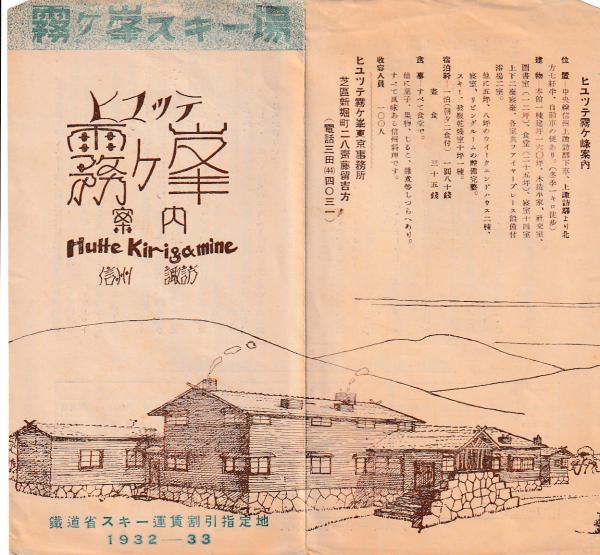 霧ヶ峯スキー場
ヒユッテ
霧ヶ峯
案内
Hutte Kirigamine
信州 諏訪
鐵道省スキー運賃割引指定地
1932—33
ヒユツテ霧ヶ峰案内
位置 中央線信州上諏訪郡下車、上諏訪驛より北
方七粁半、自動車の便あり。(冬季一キロ徒歩)
建物 本館一棟建坪一六〇坪、木造平家、社交室、
圖書室(一二坪)、食堂(二十五坪)、寝室十四室
上下二座寝臺、各室共フアイヤープレース設備付
浴場二室。
他に五坪、八坪のウイークエンドハウス二棟、
寝室、リビングルームの設備完整。
スキー、被服乾燥室十坪一棟。
宿泊料 一泊(朝夕二食付) 一圓八十錢
晝食 三十五錢
食事 すべて食堂で。
他に菓子、果物、しるこ、雑煮等しつらへあり。
すべて風味ある信州料理です。
收容人員 一〇〇人
ヒユツテ霧ヶ峯東京事務所
芝區新堀町二八齋藤留吉方
(電話三田(44)四〇三一)